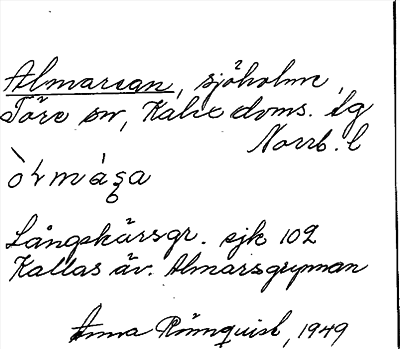 Almarean, sjöholme,
Töre sn, Kalix doms. lg
Norrb. l
Långskärsgr. sjk 102
Kallas äv. Almarsgrynnan
Anna Rönnquist, 1949